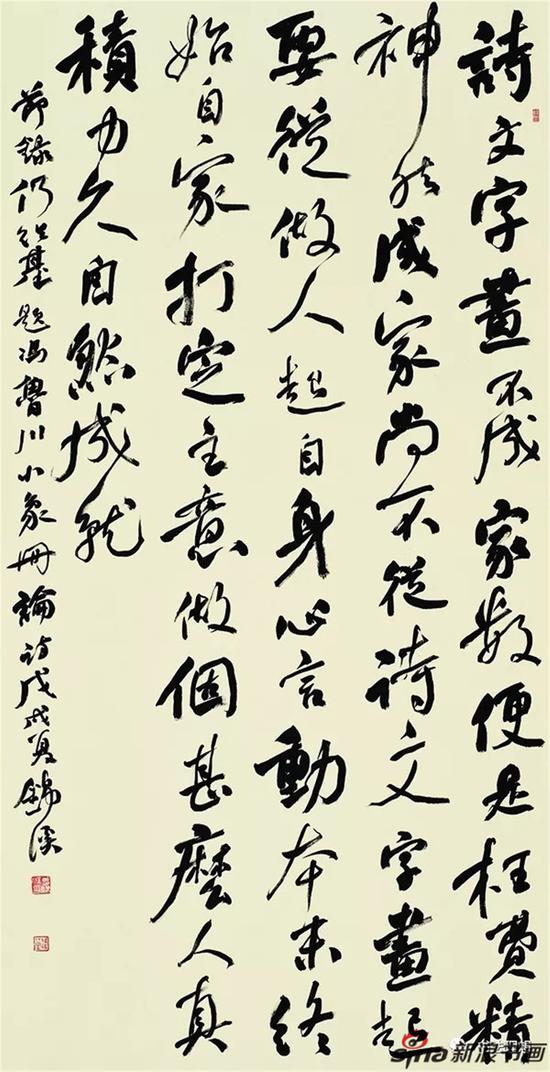 詩文字畫不成家數便是枉費精
神然成家尚不從詩文字畫起
要從做人起自身心言動本末終
始自家打定主意做個甚麼人真
積力久自然成就
節錄何紹基題馮魯川小象冊論詩戊戌夏錦溪
sina新浪书画